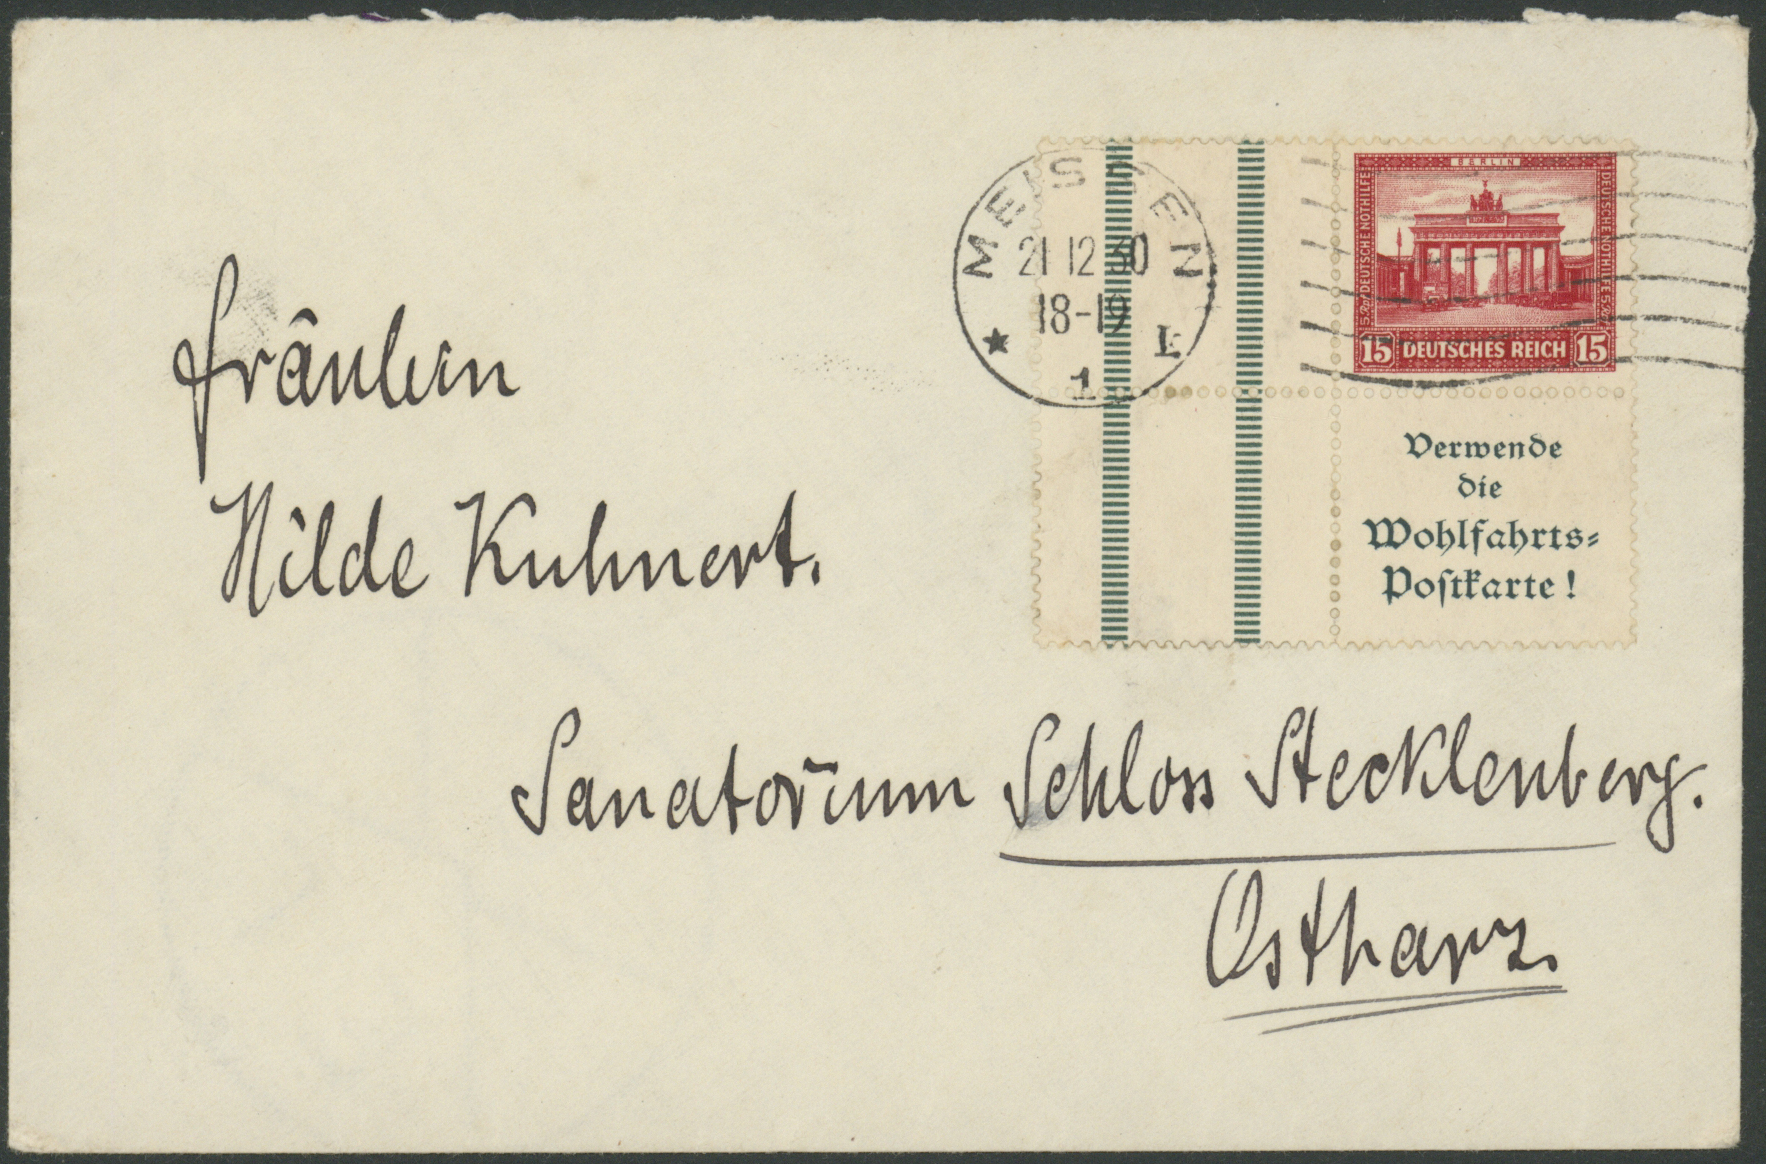 MEISSEN
21 12 30
18-19
★ 1 k
BERLIN
5Rpf DEUTSCHE NOTHILFE
DEUTSCHE NOTHILFE 5Rpf
15 DEUTSCHES REICH 15
Verwende
die
Wohlfahrts-
Postkarte!
Fräulein
Hilde Kuhnert.
Sanatorium Schloss Stecklenberg.
Ostharz.